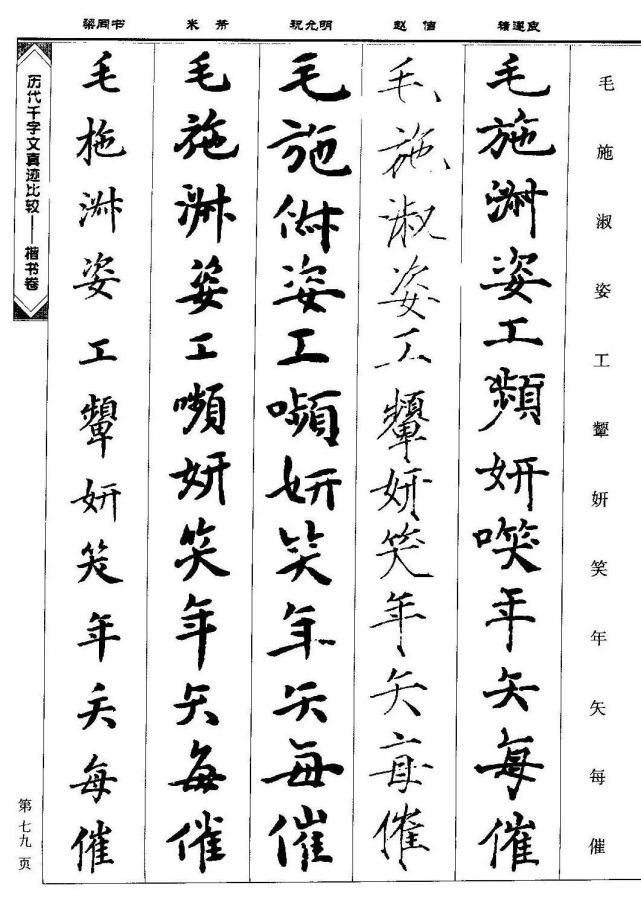 毛施淑姿工颦妍笑年矢每催
褚遂良
毛施淑姿工頻妍㗛年矢每催
赵佶
毛施淑姿工顰妍笑年矢每催
祝允明
毛施俶姿工嚬妍笑年矢每催
米芾
毛施淑姿工嚬妍笑年矢每催
梁同书
毛施淑姿工顰妍笑年矢每催
历代千字文真迹比较——楷书卷
第七九页